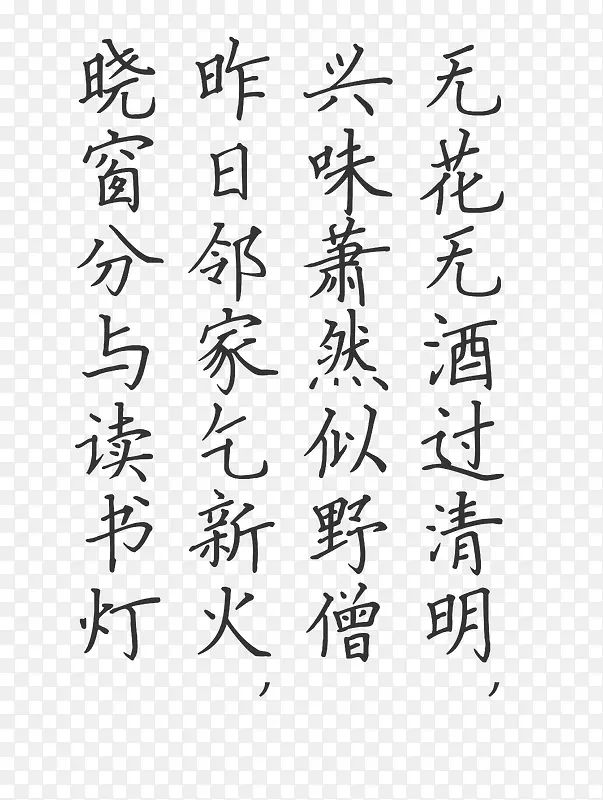 无花无酒过清明，
兴味萧然似野僧
昨日邻家乞新火，
晓窗分与读书灯